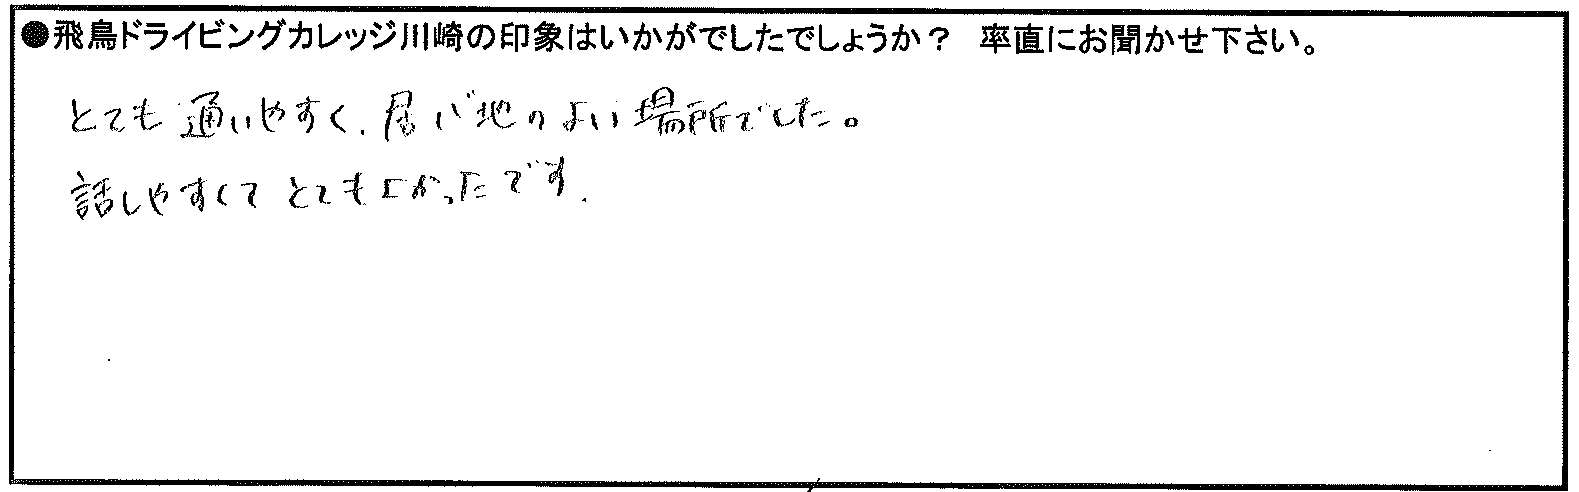 ●飛鳥ドライビングカレッジ川崎の印象はいかがでしたでしょうか？ 率直にお聞かせ下さい。
とても通いやすく、居心地のよい場所でした。
話しやすくてとてもよかったです.